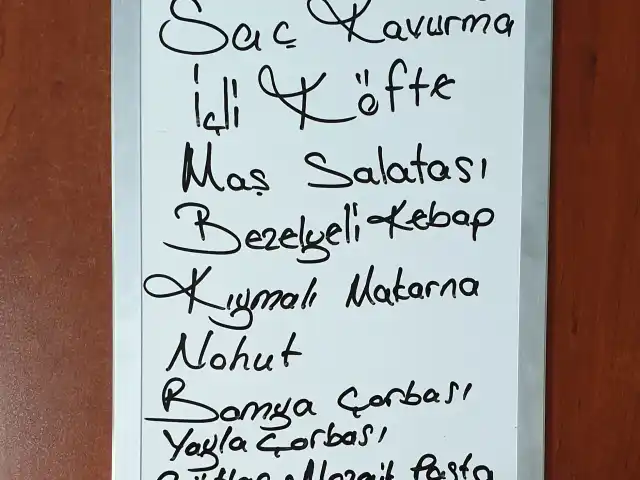 Saç Kavurma
İçli Köfte
Maş Salatası
Bezelyeli Kebap
Kıymalı Makarna
Nohut
Bamya Çorbası
Yayla Çorbası
Mozaik Pasta